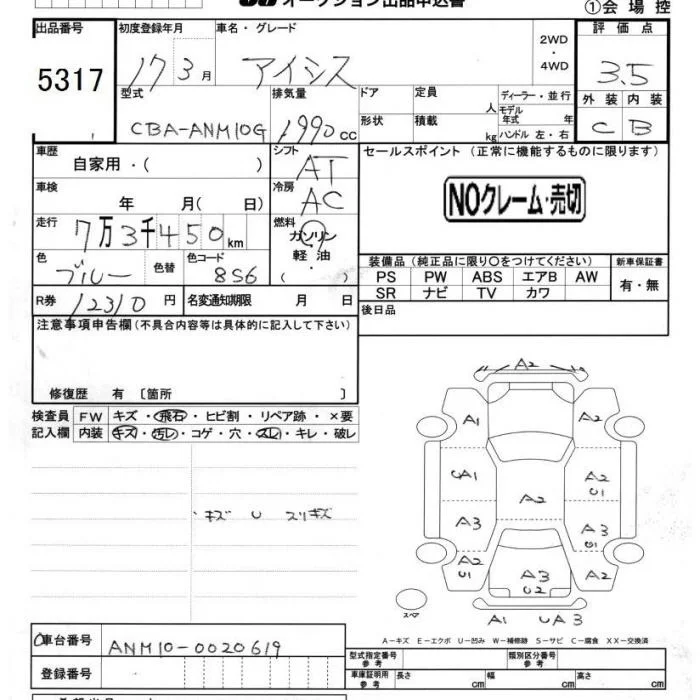 オークション出品申込書
①会場控
出品番号
5317
初度登録年月
17 3月
車名・グレード
アイシス
2WD
・
4WD
評価点
3.5
外装 内装
C B
型式
CBA-ANM10G
排気量
1990cc
ドア
定員
人
ディーラー・並行
モデル年式 年
形状
積載
kg
ハンドル 左・右
車歴
自家用・( )
シフト
AT
セールスポイント (正常に機能するものに限ります)
NOクレーム・売切
車検
年 月( 日)
冷房
AC
走行
7万3千450km
燃料
ガソリン
軽油・
( )
色
ブルー
色替
色コード
8S6
装備品(純正品に限り〇をつけてください)
新車保証書
PS PW ABS エアB AW
SR ナビ TV カワ
有・無
R券
12310円
名変通知期限 月 日
後日品
注意事項申告欄(不具合内容等は具体的に記入して下さい)
修復歴 有 〔箇所 〕
検査員
記入欄
FW キズ・飛石・ヒビ割・リペア跡・×要
内装 キズ・汚レ・コゲ・穴・スレ・キレ・破レ
キズ U スリキズ
A2
A1
A2
UA1
A2
A2
U1
A3
A3
U1
A2
U1
A3
U2
A2
スペア
A1 UA3
A-キズ E-エクボ U-凹み W-補修跡 S-サビ C-腐食 XX-交換済
車台番号
ANM10-0020619
登録番号
型式指定番号
参考
類別区分番号
参考
車庫証明用
参考
長さ cm 幅 cm 高さ cm